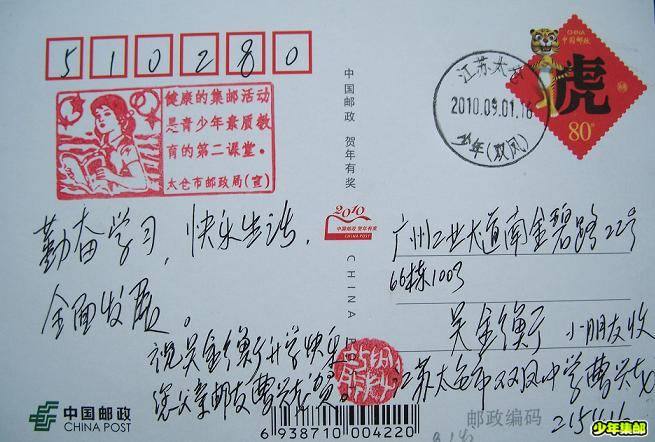 510280
健康的集邮活动
是青少年素质教
育的第二课堂。
太仓市邮政局(宣)
勤奋学习，快乐生活，
全面发展。
祝吴金衡升学快乐
您父亲邮友曹
中国邮政
CHINA POST
中国邮政 贺年有奖
2010
中国邮政 贺年有奖
CHINA POST
CHINA POST
6 938710 004220
江苏太仓
2010.09.01.16
少年(双凤)
CHINA
中国邮政
虎
80分
广州工业大道南金碧路22号
66栋1003
吴金衡 小朋友收
江苏太仓市双凤中学曹
邮政编码
215416
少年集邮